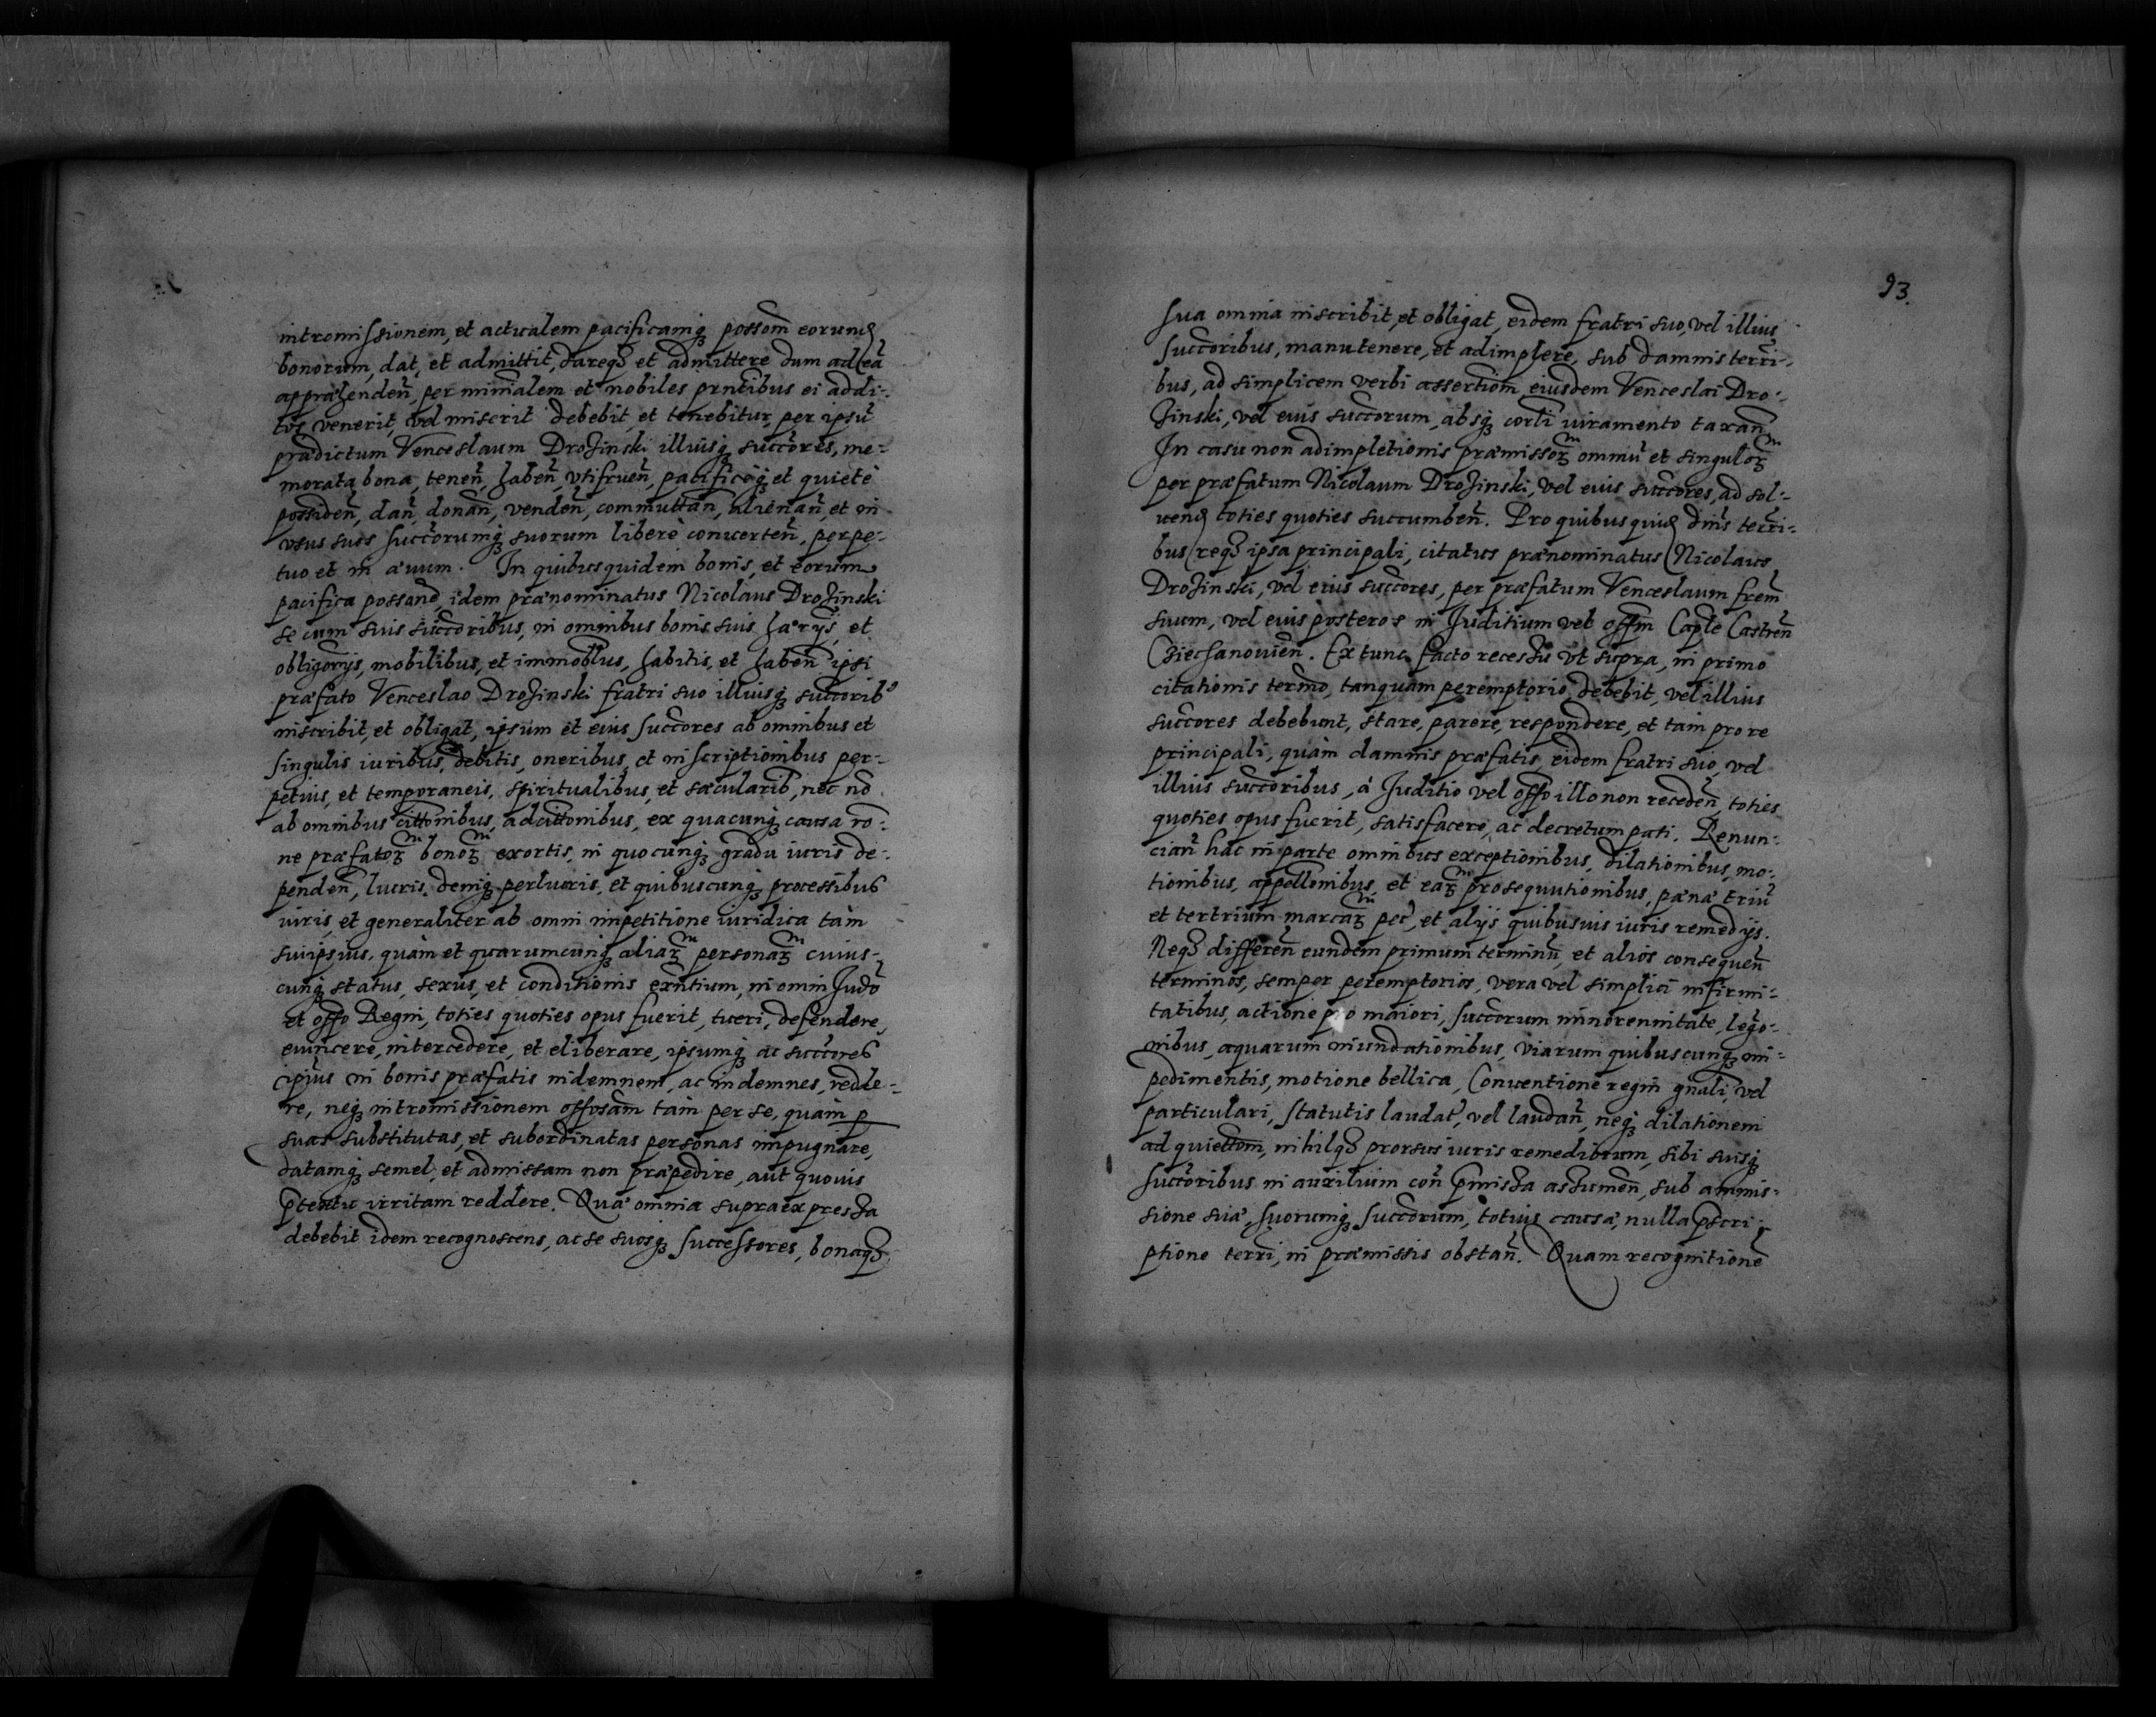 intromissionem, et actualem pacificamq₃ possom̃ eorund
bonorum, dat, et admittit, dareq₃ et admittere dum ad ea
appræhenden̄, per minr̄ialem et nobiles prñtibus ei addi-
tos venerit, vel miserit debebit, et tenebitur, per ipsū
prædictum Venceslaum Drozinski illiusq₃ succ̄ores, me-
morata bona, tenen̄, haben̄, vtifruen̄, pacificèq₃ et quietè
possiden̄, dan̄, donan̄, venden̄, commuttan̄, alienan̄, et in
vsus suos succ̄orumq₃ suorum liberè conuerten̄, perpe-
tuo et in æuum. In quibusquidem bonis, et eorum
pacifica possand̄, idem prænominatus Nicolaus Drozinski
se cum suis succ̄oribus, in omnibus bonis suis hærijs, et
obligōrijs, mobilibus, et immob̄lus, habitis, et haben̄ ipsi
præfato Venceslao Drozinski fratri suo illiusq₃ succ̄orib⁹
inscribit, et obligat, ipsum et eius succ̄ores ab omnibus et
singulis iuribus, debitis, oneribus, et inscriptionibus per-
petuis, et temporaneis, spiritualibus, et sæcularib̄, nec nō
ab omnibus citt̄onibus, adcitt̄onibus, ex quacunq₃ causa ro-
ne præfatoꝝ bonoꝝ exortis, in quocunq₃ gradu iuris de-
penden̄, lucris demq₃ perlucris, et quibuscunq₃ processibus
iuris, et generaliter ab omni impetitione iuridica tàm
suiipsius, quàm et quarumcunq₃ aliaꝝ personaꝝ cuius-
cunq₃ status, sexus, et conditionis exñtium, in omni Judō
et offō Regni, toties quoties opus fuerit, tueri, defendere,
euincere, intercedere, et eliberare, ipsumq₃ ac succ̄ores
ipius in bonis præfatis indemnem, ac indemnes, redde-
re, neq₃ intromissionem offosam̄ tàm per se, quàm p
suas substitutas, et subordinatas personas impugnare,
datamq₃ semel, et admissam non præpedire, aut quouis
p̄textu irritam reddere. Quæ omnia supraexpressa
debebit idem recognoscens, ac se suosq₃ successores, bonaq₃
93.
sua omnia inscribit, et obligat, eidem fratri suo, vel illius
succ̄oribus, manutenere, et adimplere, sub damnis terr̄i-
bus, ad simplicem verbi assertiom̄ eiusdem Venceslai Dro-
zinski, vel eius succ̄orum, absq₃ corr̄li iuramento taxan̄
In casu non adimpletionis præmissoꝝ omniū et singuloꝝ
per præfatum Nicolaum Drozinski, vel eius succ̄ores, ad sol-
uend toties quoties succumben̄. Pro quibus quid dm̄s terr̄i-
bus req₃ ipsa principali, citatus prænominatus Nicolaus
Drozinski, vel eius succ̄ores, per præfatum Venceslaum frem̄
suum, vel eius posteros in Juditium vel offm̄ Capl̄e Castren̄
Ciechanouien̄. Ex tunc facto recessu vt supra, in primo
citationis termō, tanquam peremptorio, debebit, vel illius
succ̄ores debebunt, stare, parere, respondere, et tàm pro re
principali, quàm damnis præfatis, eidem fratri suo, vel
illius succ̄oribus, à Juditio vel offō illo non receden̄ toties
quoties opus fuerit, satisfacere, ac decretum pati. Renun-
cian̄ hac in parte omnibus exceptionibus, dilationibus, mo-
tionibus, appell̄onibus, et eaꝝ prosequutionibus, pæna triū
et tertrium marcaꝝ pec̄, et alijs quibusuis iuris remedijs.
Neq₃ differen̄ eundem primum terminū, et alios consequen̄
terminos, semper peremptorios, vera vel simplici infirmi-
tatibus, actione pro maiori, succ̄orum minorennitate, leg̃o-
nibus, aquarum inundationibus, viarum quibuscunq₃ im-
pedimentis, motione bellica, Conuentione regni gn̄ali, vel
particulari, statutis laudat̄, vel laudan̄, neq₃ dilationem
ad quiett̄om, nihilq₃ prorsus iuris remedium, sibi suisq₃
succ̄oribus in auxilium con̄ p̄missa assumen̄, sub ammis-
sione suæ, suorumq₃ succ̄orum, totius causæ, nulla p̄scri-
ptione terr̄i, in præmissis obstan̄. Quam recognitionē